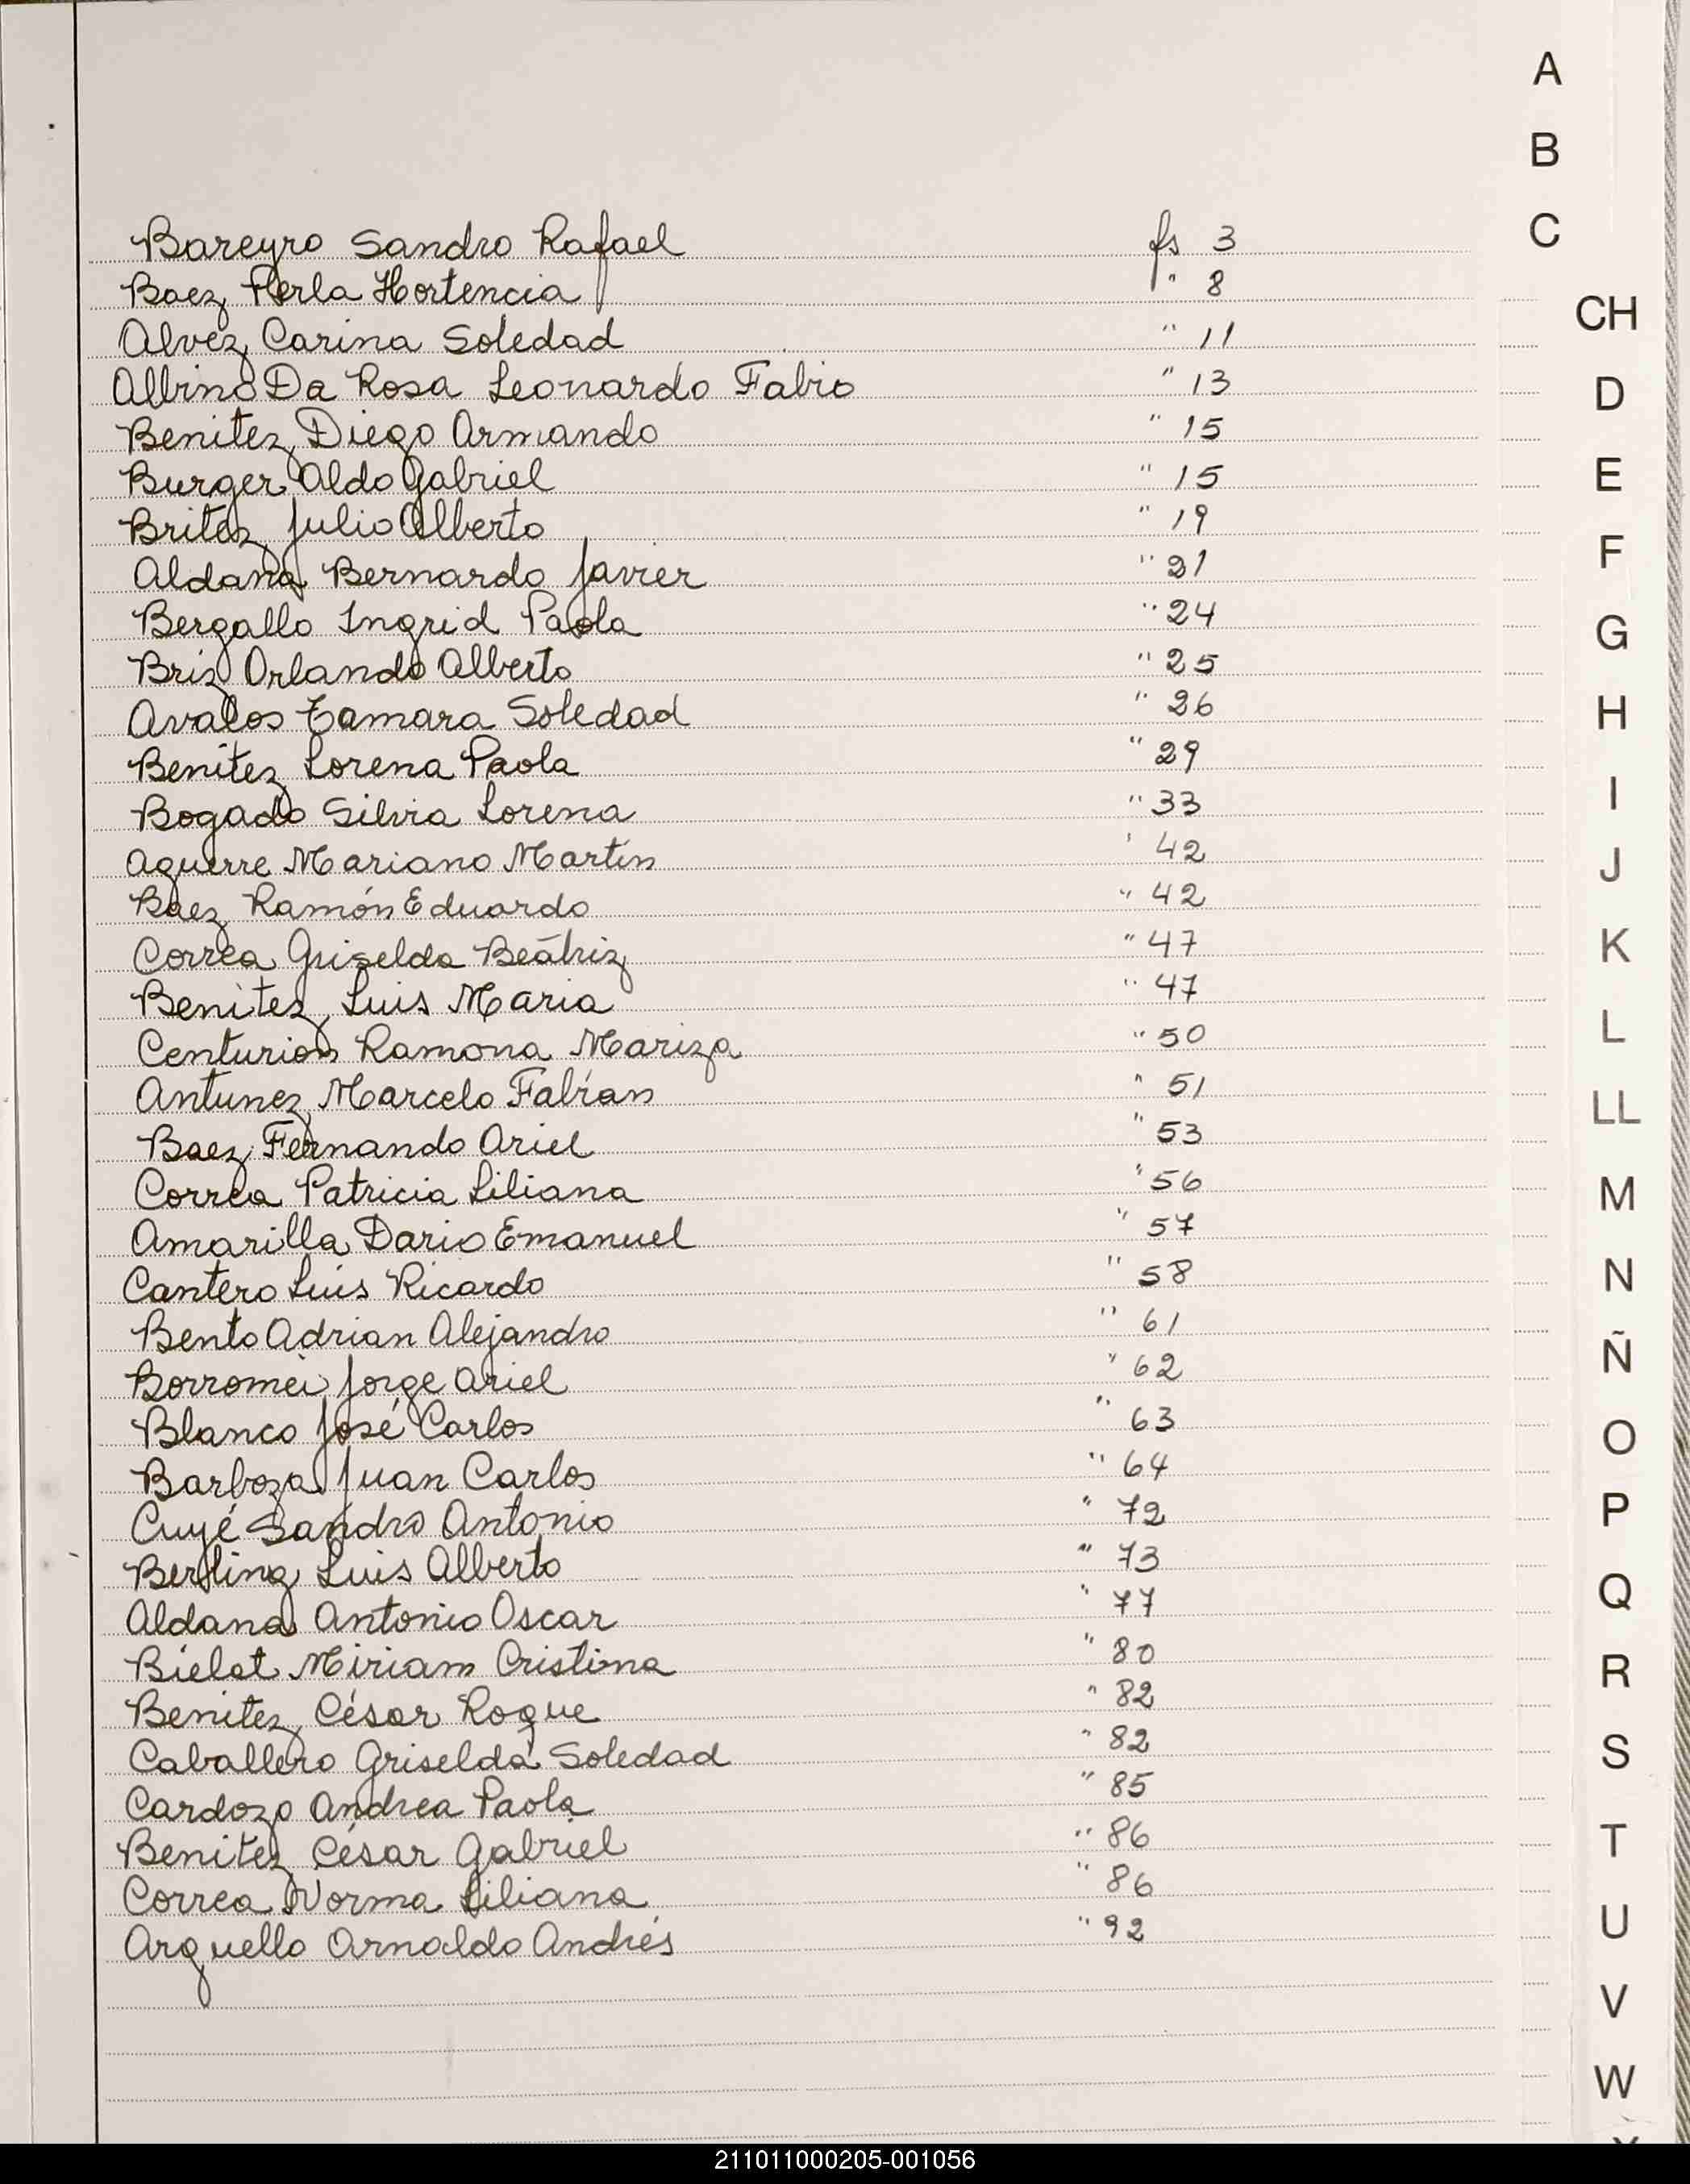 A
B
C
Bareyro Sandro Rafael fs 3
Baez Perla Hortencia " 8
CH
Alvez Carina Soledad " 11
Albino Da Rosa Leonardo Fabio " 13
D
Benitez Diego Armando " 15
Burger Aldo Gabriel " 15
E
Britez Julio Alberto " 19
F
Aldana Bernardo Javier " 21
Bergallo Ingrid Paola " 24
G
Briz Orlando Alberto " 25
Avalos Tamara Soledad " 26
H
Benitez Lorena Paola " 29
Bogado Silvia Lorena " 33
I
Aguerre Mariano Martín ' 42
J
Baez Ramón Eduardo " 42
Correa Griselda Beátriz " 47
K
Benitez Luis Maria " 47
Centurion Ramona Mariza " 50
L
Antunez Marcelo Fabían " 51
LL
Baez Fernando Ariel " 53
Correa Patricia Liliana " 56
M
Amarilla Dario Emanuel " 57
Cantero Luis Ricardo " 58
N
Bento Adrian Alejandro " 61
Ñ
Borromei Jorge Ariel " 62
Blanco José Carlos " 63
O
Barboza Juan Carlos " 64
Cuyé Sandro Antonio " 72
P
Berling Luis Alberto " 73
Q
Aldana Antonio Oscar " 77
Bielat Miriam Cristina " 80
R
Benitez César Roque " 82
Caballero Griselda Soledad " 82
S
Cardozo Andrea Paola " 85
Benitez César Gabriel " 86
T
Correa Norma Liliana " 86
U
Arguello Arnaldo Andrés " 92
V
W
211011000205-001056